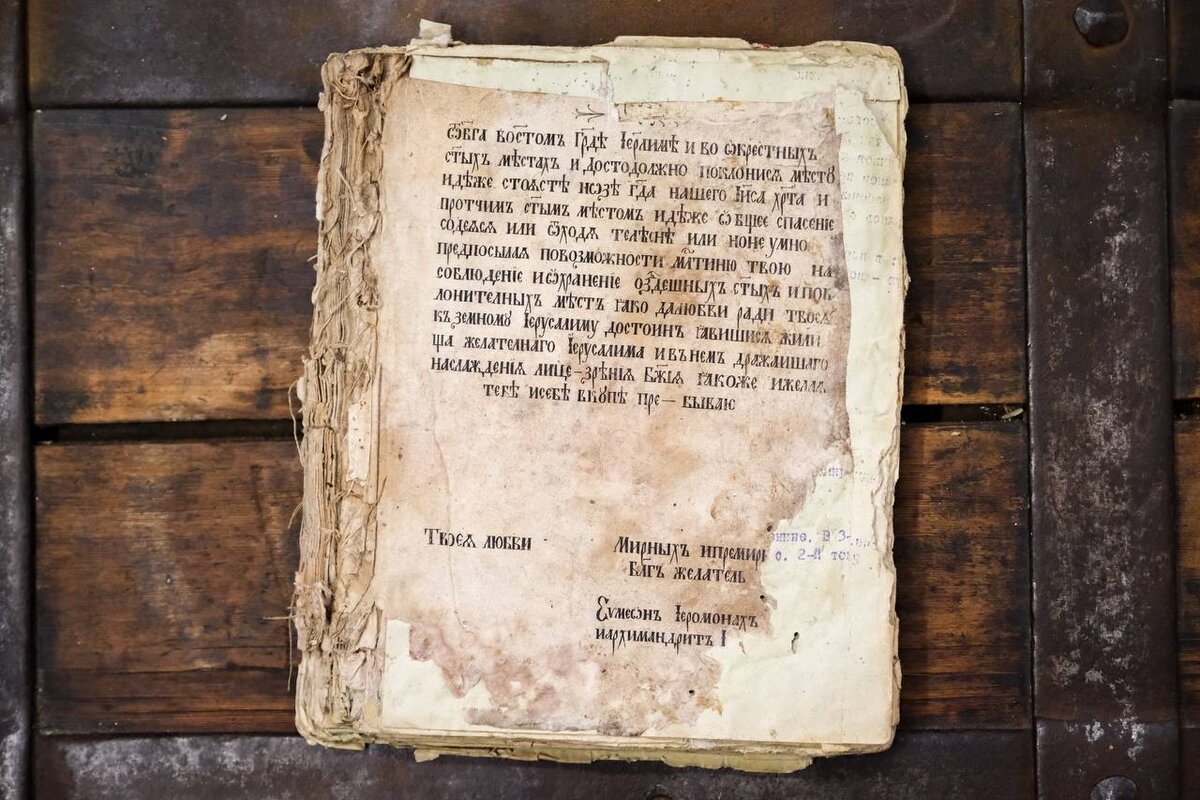 ѾБГА ВОСТОМЪ ГРДѢ ІЕРЛИМѢ И ВО ѠКРЕСТНЫХЪ
СТЫХЪ МѢСТАХЪ И ДОСТОДОЛЖНО ПОКЛОНИСѦ МѢСТꙋ
ИДѢЖЕ СТОѦСТѢ НОЗѢ ГДА НАШЕГО ІИСА ХРТА И
ПРОТЧИМЪ СТЫМЪ МѢСТОМЪ ИДѢЖЕ ѠБЩЕЕ СПАСЕНІЕ
СОДЕѦСѦ ИЛИ ѾХОДѦ ТЕЛѢСНѢ ИЛИ НОНЕ УМНО
ПРЕДПОСЫЛАѦ ПОВОЗМОЖНОСТИ МЛТИНЮ ТВОЮ НА
СОБЛЮДЕНІЕ И СОХРАНЕНІЕ ОЗДЕШНЫХЪ СТЫХЪ И ПОК
ЛОНИТЕЛНЫХЪ МѢСТЪ ꙖКО ДАЛЮБВИ РАДИ ТВОЕѦ
КЪ ЗЕМНОМУ ІЕРУСАЛИМУ ДОСТОИНЪ ꙖВИШИСѦ ЖИЛИ
ЩА ЖЕЛАТЕЛНАГО ІЕРУСАЛИМА И ВЪ НЕМЪ ДРАЖАИШАГО
НАСЛАЖДЕНІѦ ЛИЦЕ-ЗРѢНІѦ БЖІѦ ꙖКОЖЕ И ЖЕЛАѦ
ТЕБѢ И СЕБѢ ВКꙋПѢ ПРЕ— БЫВАЮ
ТВОЕѦ ЛЮБВИ
МИРНЫХЪ ИПРЕМИР
БЛГЪ ЖЕЛАТЕЛЬ
ЕѴМЕОНЪ ІЕРОМОНАХЪ
ИАРХИМАНДРИТЪ І
В 3-
о. 2-й